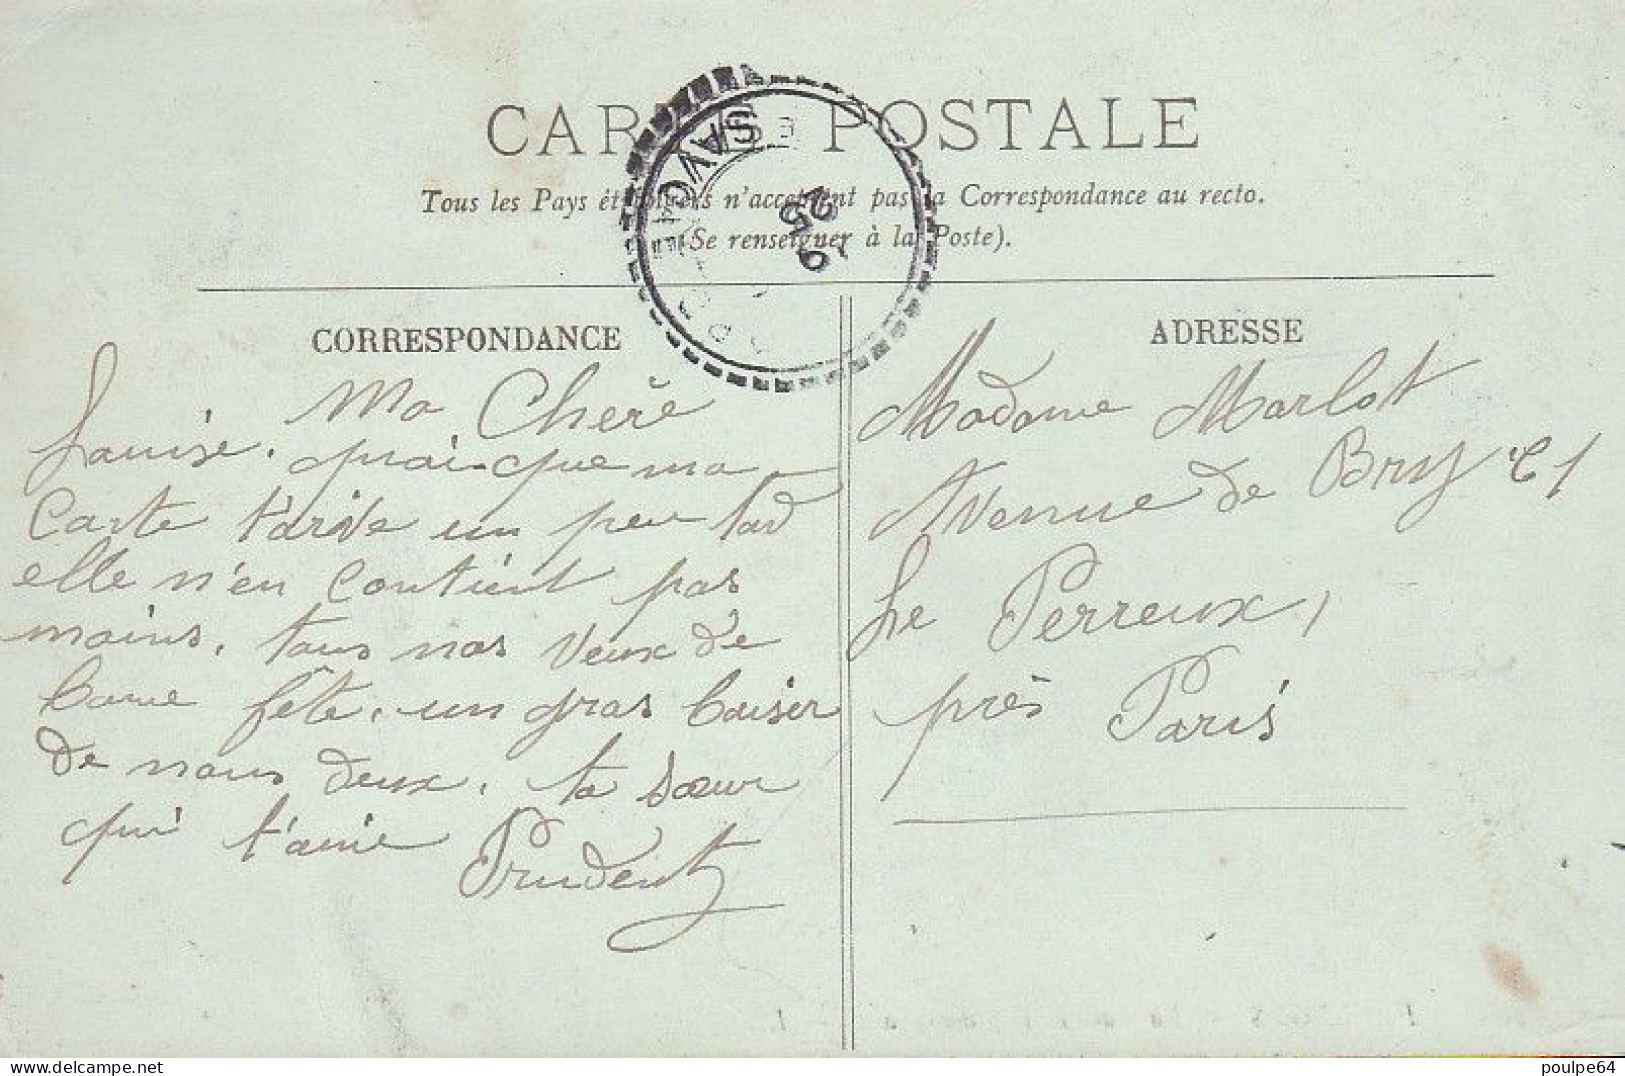 CARTE POSTALE
Tous les Pays étrangers n'acceptent pas la Correspondance au recto.
(Se renseigner à la Poste).
SAVOIE
25
CORRESPONDANCE
Ma Chère
Louise. quoi-que ma
Carte t'arive un peu tard
elle n'en contient pas
moins, tous nos veux de
bone fête, un gros baiser
de nous deux, ta sœur
qui t'aime
Prudent
ADRESSE
Madame Marlot
Avenue de Bry 61
Le Perreux,
près Paris
poulpe64